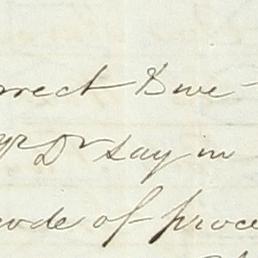 rrect & we-
yr Dr say in
code of proce